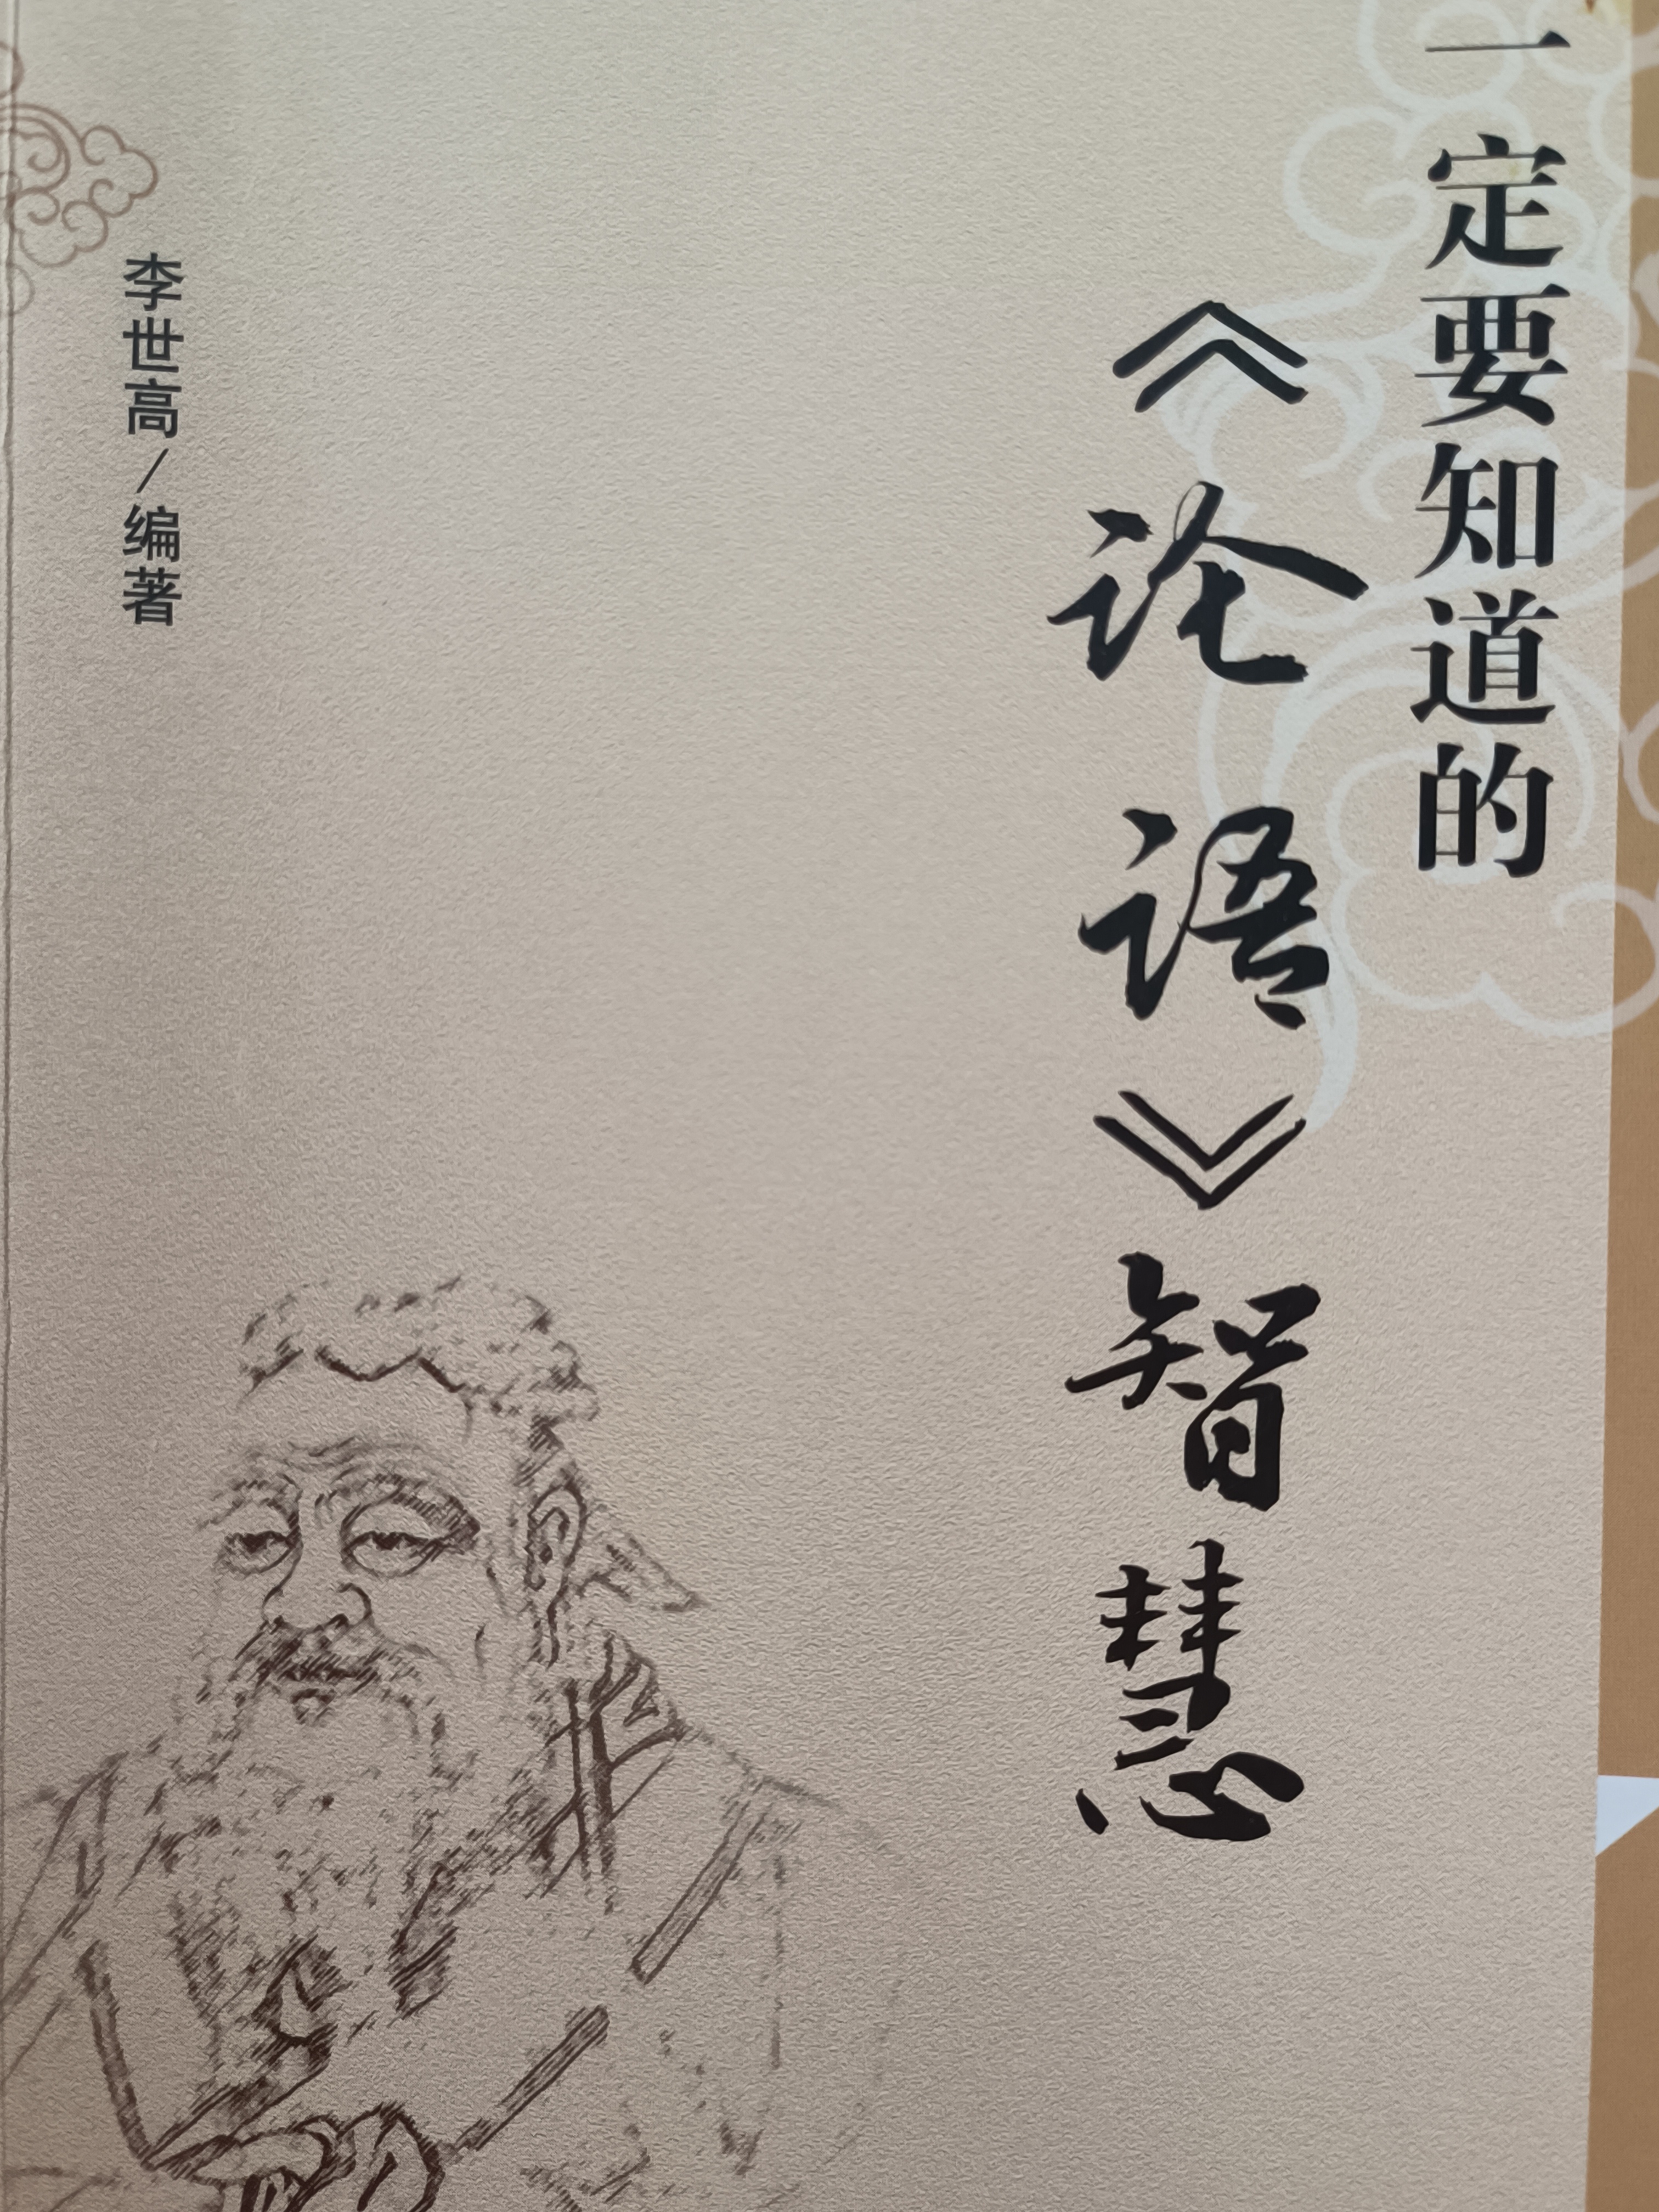 一定要知道的
《论语》智慧
李世高/编著